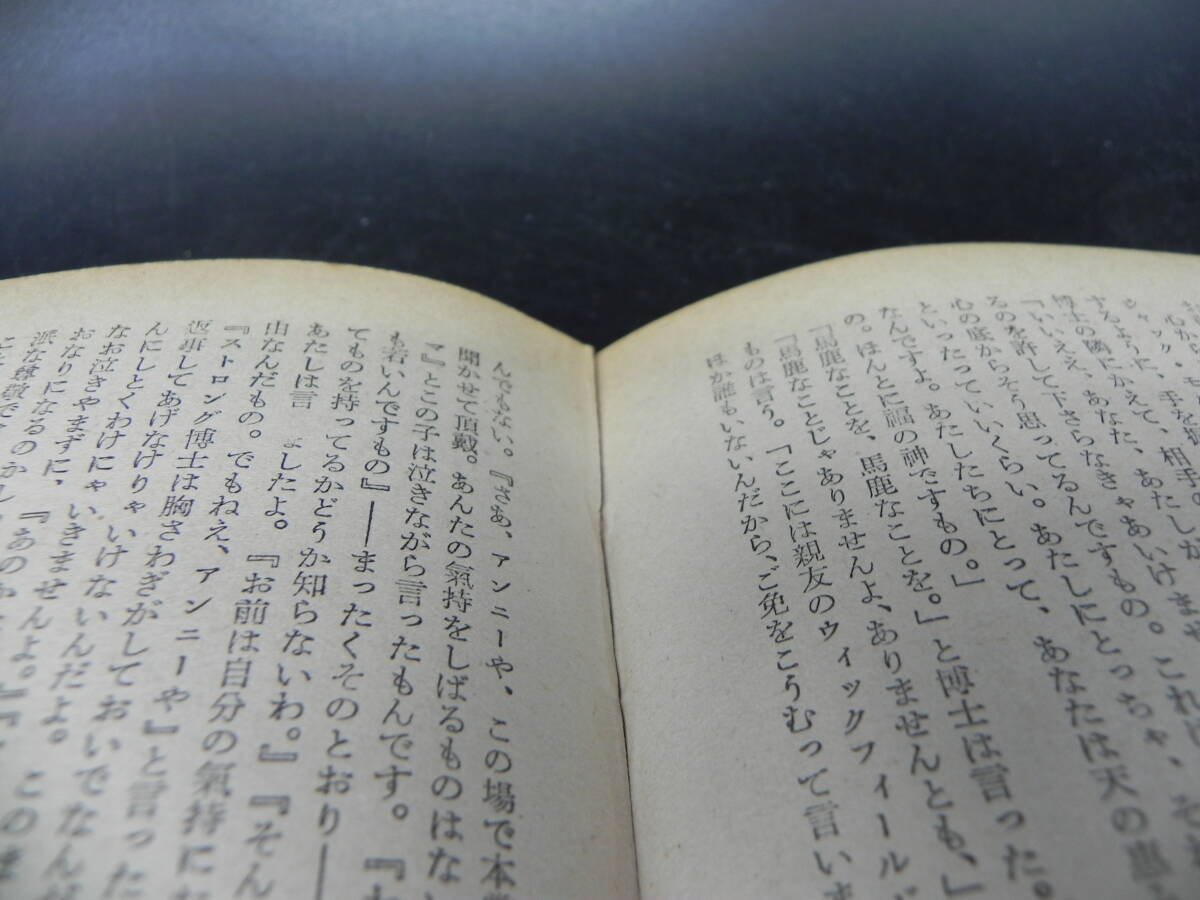 ジャック・
するように、手を
博士の隣にかえて、相手
「いいえ、あなた、あたしが
るのを許して下さらなきゃあいけませ
心の底からそう思ってるんですもの。これは
といったっていいくらい。あたしにとっちゃ、それ
なんですよ。あたしたちにとって、あなたは天の恵
の。ほんとに福の神ですもの。」
「馬鹿なことを、馬鹿なことを。」と博士は言った。
「馬鹿なことじゃありませんよ、ありませんとも、」
ものは言う。「ここには親友のウィックフィールド
ほか誰もいないんだから、ご免をこうむって言いま
んでもない。『さあ、アンニーや、この場で本当
聞かせて頂戴。あんたの氣持をしばるものはない
マ』とこの子は泣きながら言ったもんです。『
も若いんですもの』――まったくそのとおり――
てものを持ってるかどうか知らないわ。』『そん
あたしは言 ましたよ。『お前は自分の氣持に
由なんだもの。でもねえ、アンニーや』と言った
『ストロング博士は胸さわぎがしておいでなん
返事してあげなけりゃいけないんだよ。このま
んにしとくわけにゃいきませんよ。』『
なお泣きやまずに、『あのか
おなりになるのかし
派な尊敬です